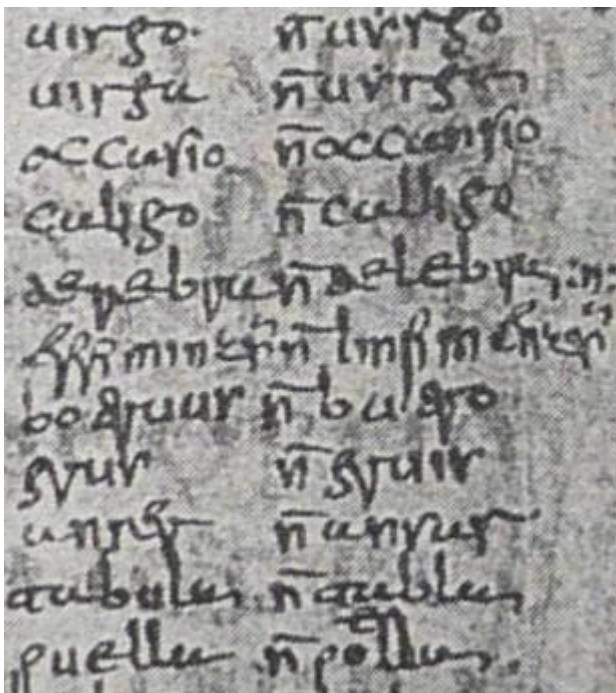 uirgo n̄ uyrgo
uirga n̄ uyrga
occasio n̄ occansio
caligo n̄ calligo
terebra n̄ telebra
n̄
botruus n̄ butro
grus n̄ gruis
anser n̄ ansar
tabula n̄ tabla
puella n̄ poella